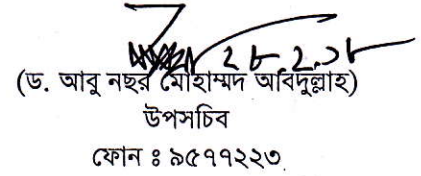 ২৮.২.১৮
(ড. আবু নছর মোহাম্মদ আবিদুল্লাহ)
উপসচিব
ফোন ঃ ৯৫৭৭২২৩